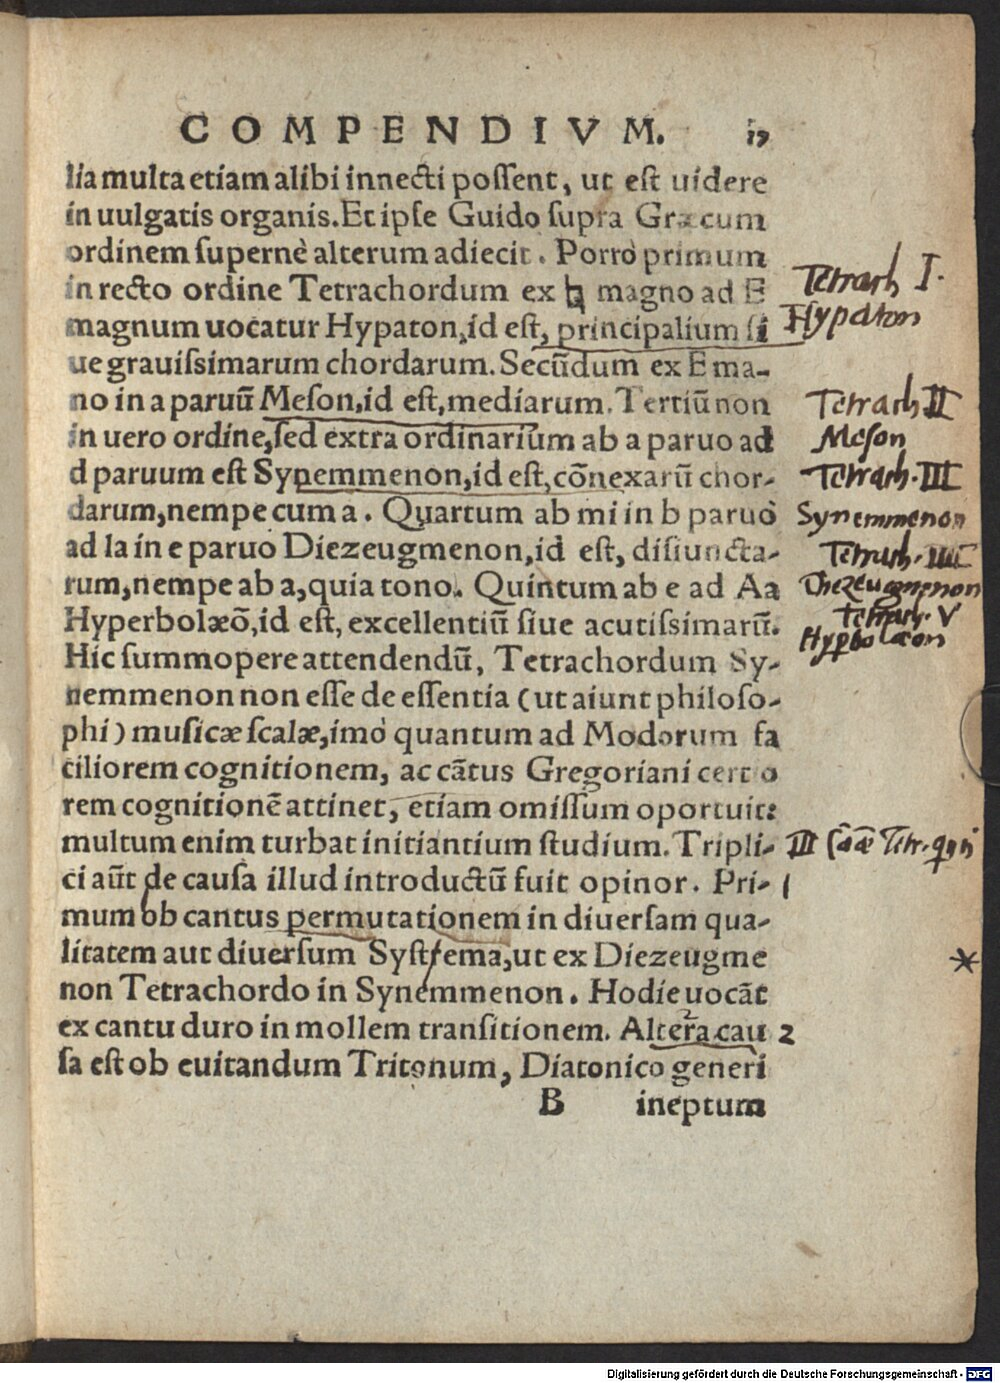 COMPENDIVM. 17
lia multa etiam alibi innecti poſſent, ut eſt uidere
in uulgatis organis. Et ipſe Guido ſupra Græcum
ordinem ſupernè alterum adiecit. Porrò primum
in recto ordine Tetrachordum ex ♮ magno ad E
magnum uocatur Hypaton, id eſt, principalium ſi
ue grauiſsimarum chordarum. Secũdum ex E ma-
no in a paruũ Meſon, id eſt, mediarum. Tertiũ non
in uero ordine, ſed extra ordinarium ab a paruo ad
d paruum eſt Synemmenon, id eſt, cõnexarũ chor-
darum, nempe cum a. Quartum ab mi in b paruo
ad la in e paruo Diezeugmenon, id eſt, diſiuncta-
rum, nempe ab a, quia tono. Quintum ab e ad Aa
Hyperbolæõ, id eſt, excellentiũ ſiue acutiſsimarũ.
Hic ſummopere attendendũ, Tetrachordum Sy-
nemmenon non eſſe de eſſentia (ut aiunt philoſo-
phi) muſicæ ſcalæ, imò quantum ad Modorum fa
ciliorem cognitionem, ac cãtus Gregoriani certio
rem cognitionẽ attinet, etiam omiſſum oportuit:
multum enim turbat initiantium ſtudium. Tripli-
ci aũt de cauſa illud introductũ fuit opinor. Pri-
mum ob cantus permutationem in diuerſam qua-
litatem aut diuerſum Syſtema, ut ex Diezeugme
non Tetrachordo in Synemmenon. Hodie uocãt
ex cantu duro in mollem tranſitionem. Altera cau
ſa eſt ob euitandum Tritonum, Diatonico generi
B ineptum
Tetrach I.
Hypaton
Tetrach II
Meſon
Tetrach. III
Synemmenon
Tetrach. IIII
Diezeugmenon
Tetrach. V
Hyperbolæon
III
1
*
2
Digitalisierung gefördert durch die Deutsche Forschungsgemeinschaft - DFG